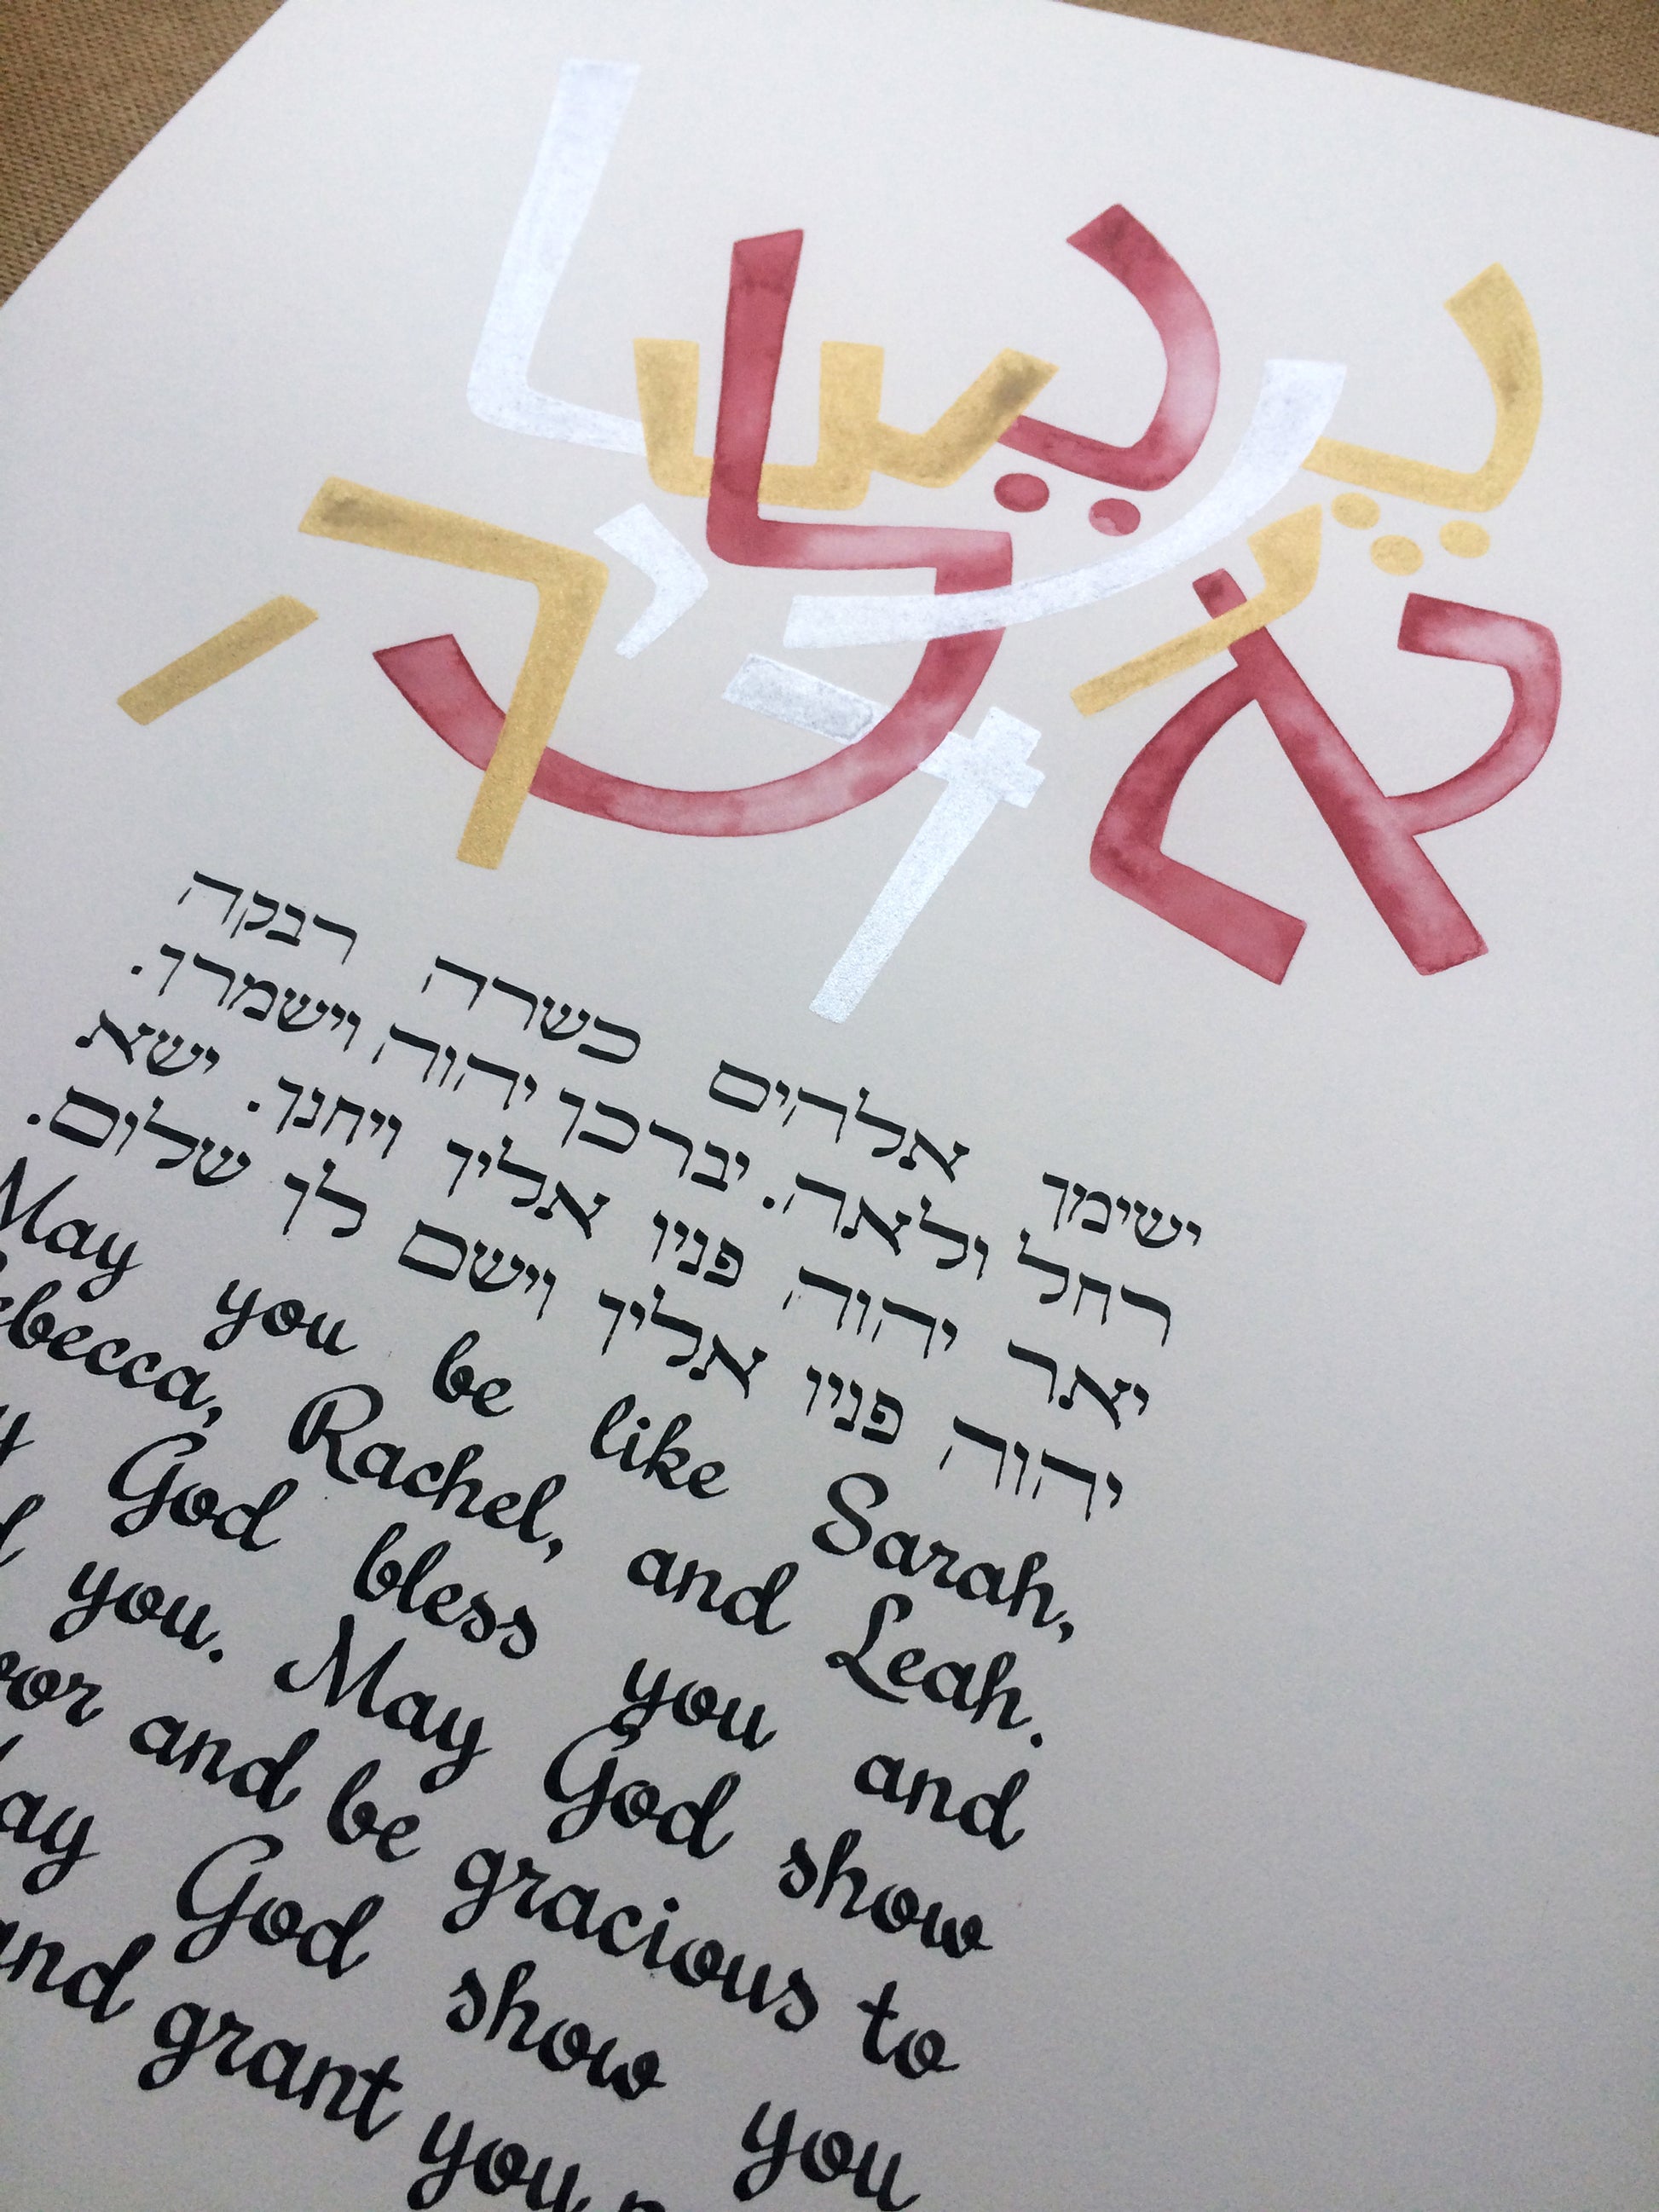 ישימך אלהים כשרה רבקה
רחל ולאה. יברכך יהוה וישמרך.
יאר יהוה פניו אליך ויחנך. ישא
יהוה פניו אליך וישם לך שלום.
May you be like Sarah,
ebecca, Rachel, and Leah.
God bless you and
you. May God show
and be gracious to
ay God show you
and grant you